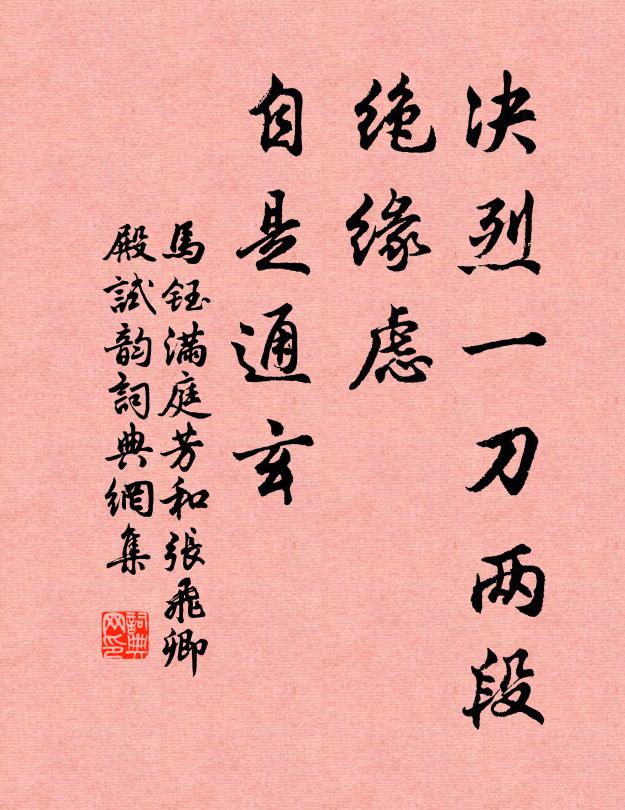 决烈一刀两段
绝缘虑
自是通玄
馬钰满庭芳和張飛卿
殿試韵詞典網集
詞典网印